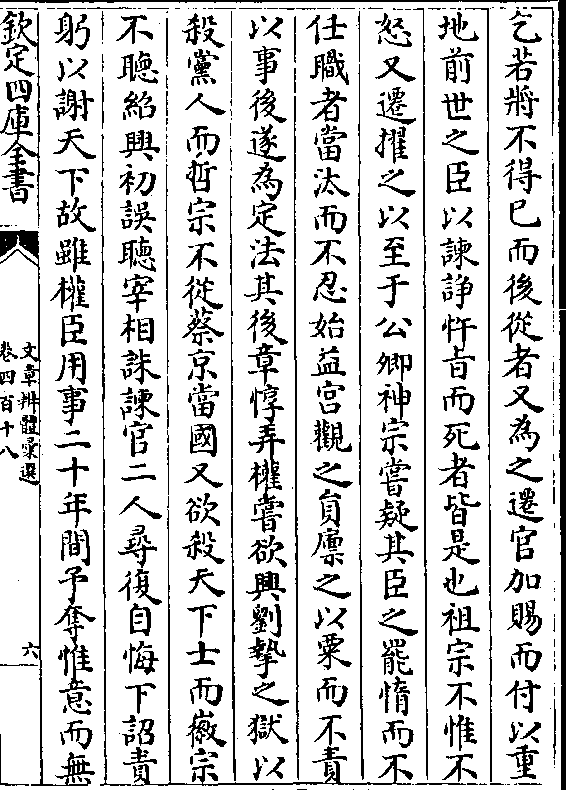 乞若將不得已而後從者又為之遷官加賜而付以重
地前世之臣以諫諍忤㫖而死者皆是也祖宗不惟不
怒又遷擢之以至于公卿神宗嘗疑其臣之罷惰而不
任職者當汰而不忍始益宫觀之員廪之以粟而不責
以事後遂為定法其後章惇弄權嘗欲興劉摯之獄以
殺黨人而哲宗不從蔡京當國又欲殺天下士而徽宗
不聽紹興初誤聽宰相誅諫官二人尋復自悔下詔責
躬以謝天下故雖權臣用事二十年間予奪惟意而無
欽定四庫全書
文章辨體彙選
卷四百十八
六